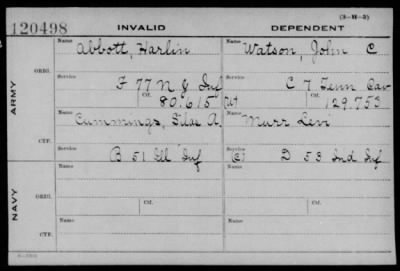 (3-H-3)
120498 INVALID DEPENDENT
Name Abbott, Harlin Name Watson, John C
ARMY
ORIG.
Service F 77 N Y Inf Service C 7 Tenn Cav
Ctf. 80.615 Ctf. 129.753
Name Cummings, Silas A. Name Murr Levi
CTF.
Service B 51 Ill Inf Service D 53 Ind Inf
NAVY
Name Name
ORIG.
Ctf. Ctf.
Name Name
CTF.